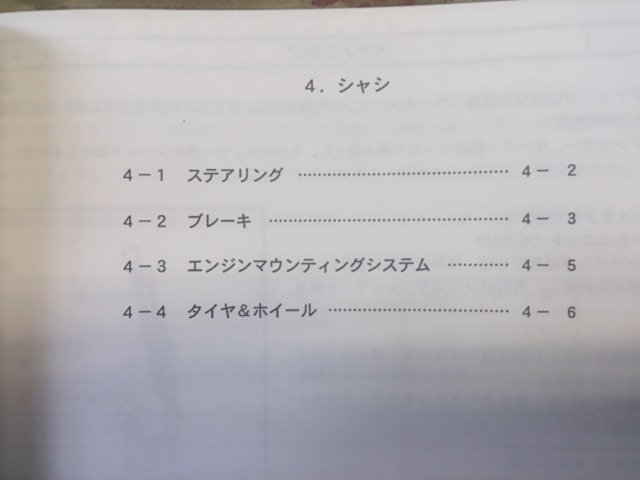 4. シャシ
4-1 ステアリング ………………………………… 4- 2
4-2 ブレーキ ……………………………………… 4- 3
4-3 エンジンマウンティングシステム ………… 4- 5
4-4 タイヤ&ホイール …………………………… 4- 6